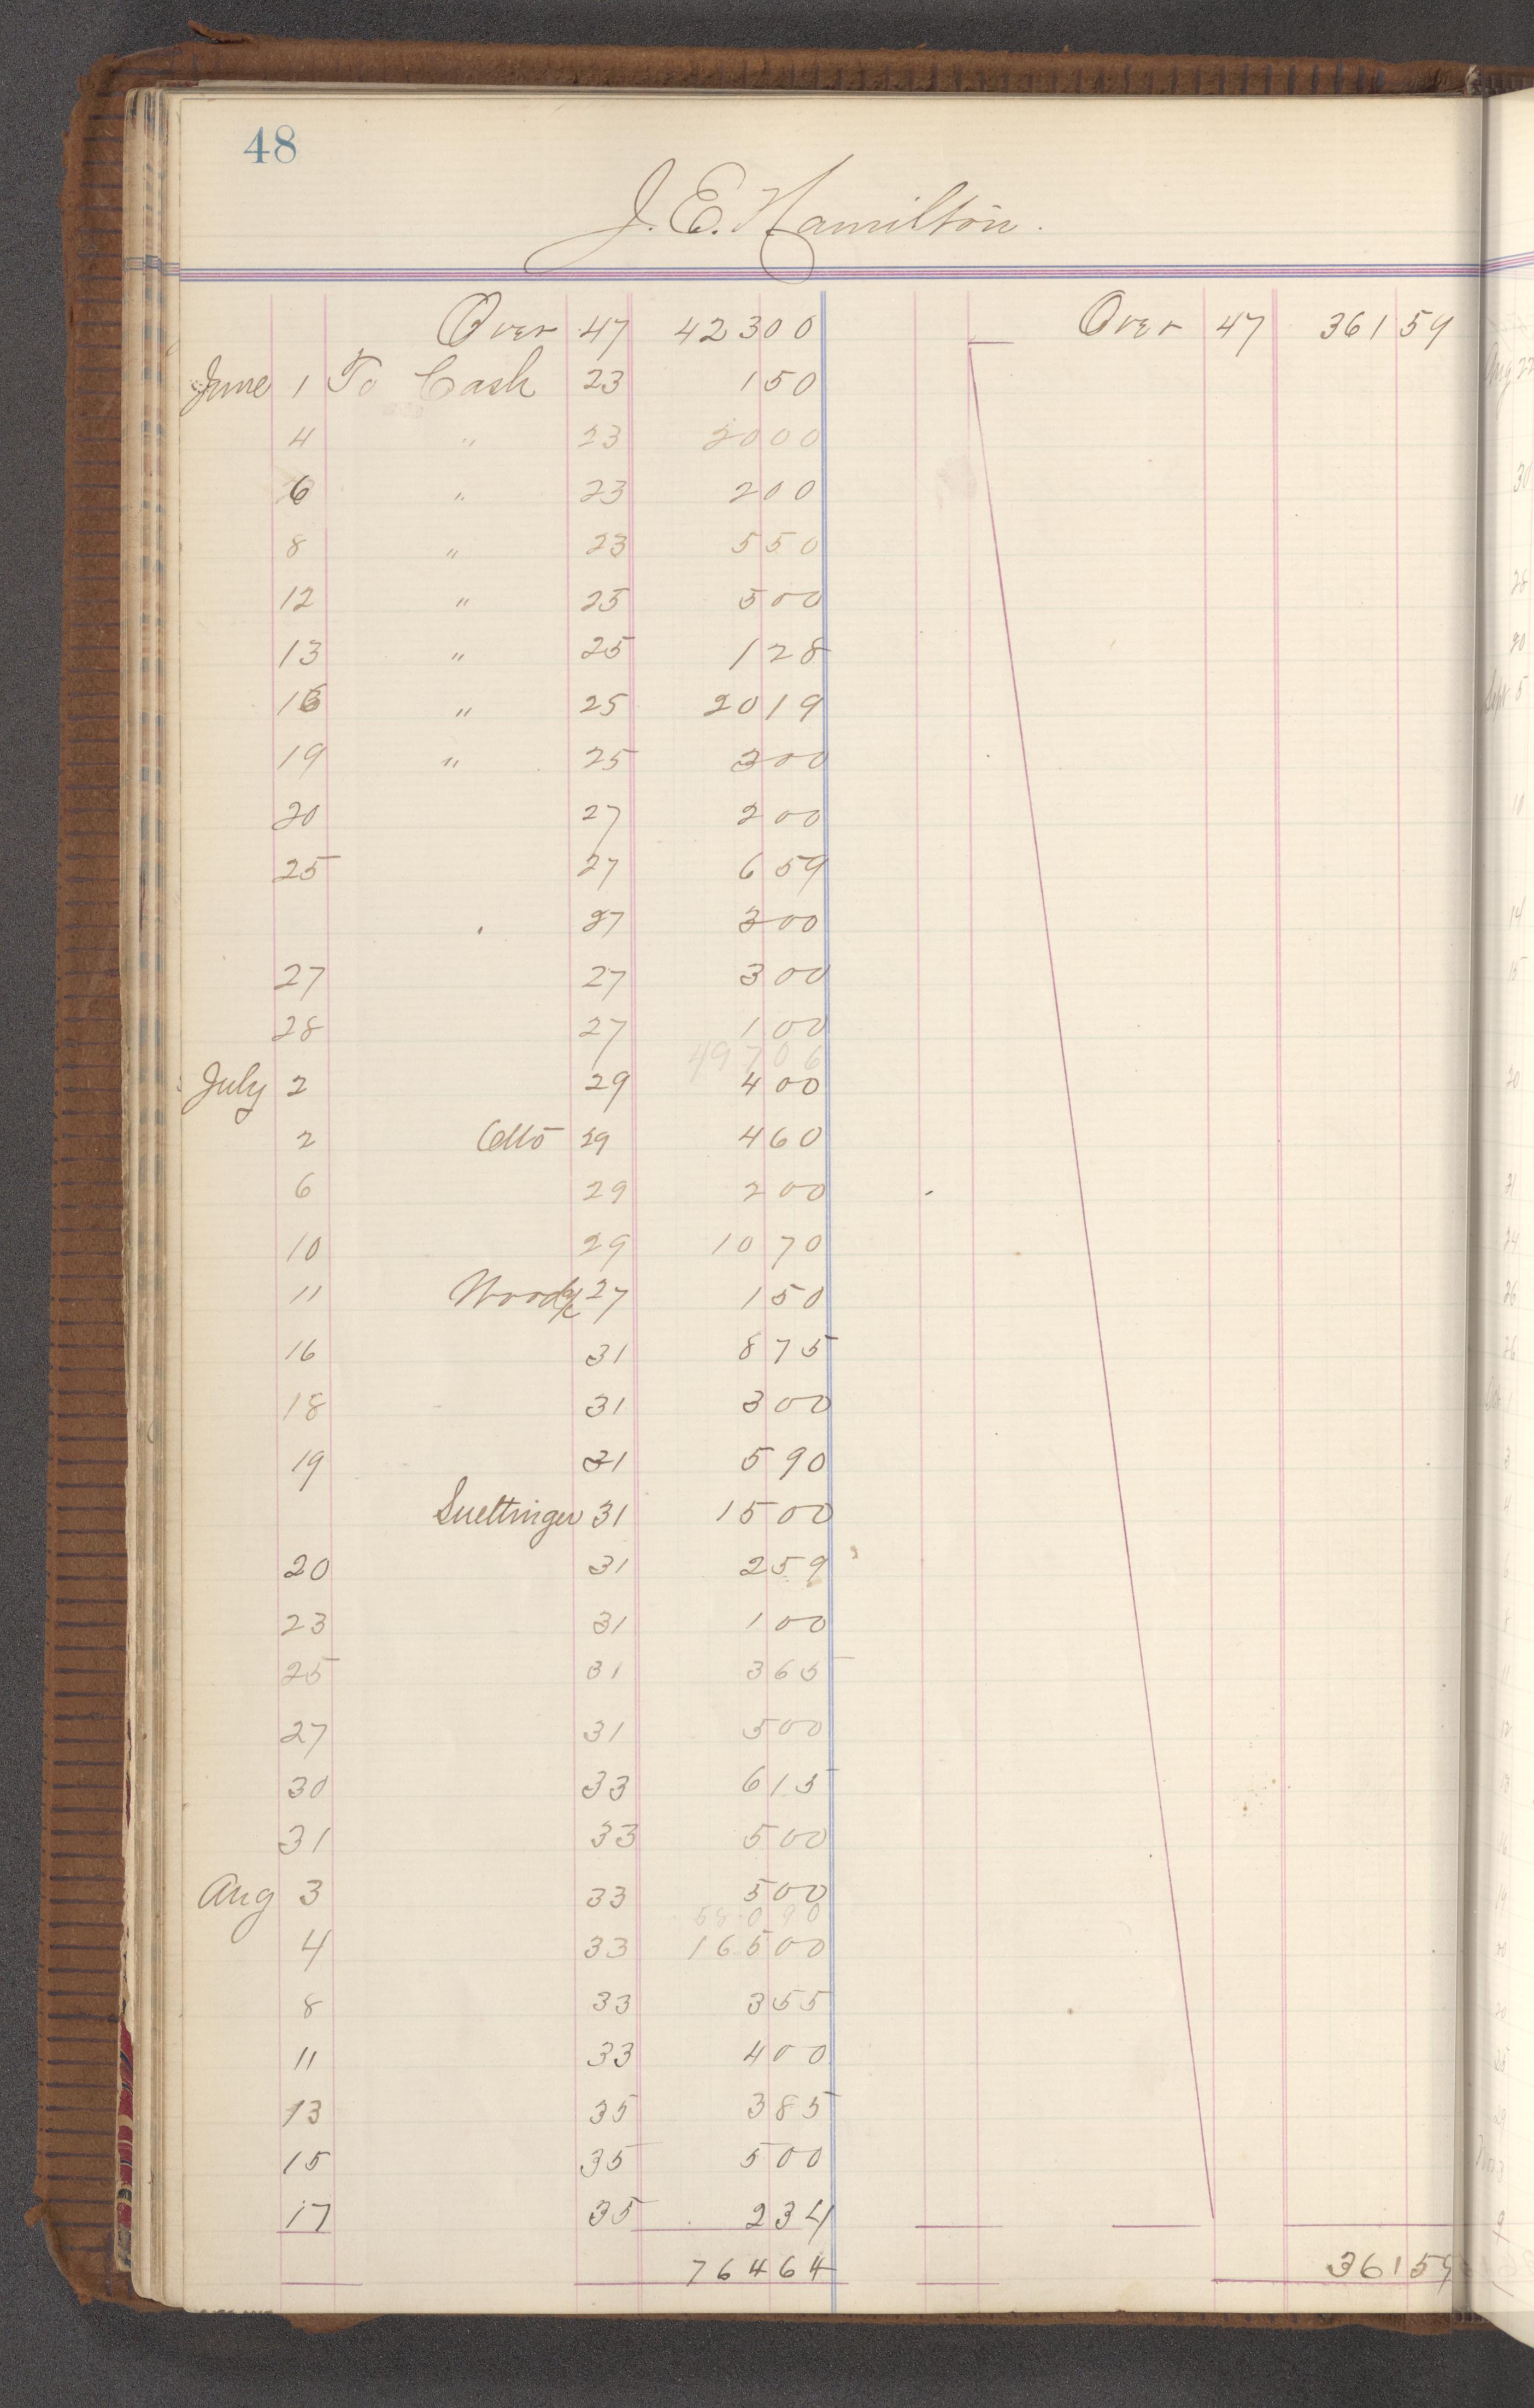 48
J. E. Hamilton.
Over 47 42300 Over 47 36159
June 1 To Cash 23 150
4 " 23 2000
6 " 23 200
8 " 23 550
12 " 25 500
13 " 25 128
16 " 25 2019
19 " 25 300
20 27 200
25 27 659
27 200
27 27 300
28 27 100
49706
July 2 29 400
2 Otto 29 460
6 29 200
10 29 1070
11 27 150
16 31 875
18 31 300
19 31 590
Suettinger 31 1500
20 31 259
23 31 100
25 31 365
27 31 500
30 33 615
31 33 500
Aug 3 33 500
4 33 16500
8 33 355
11 33 400
13 35 385
15 35 500
17 35 234
76464 36159